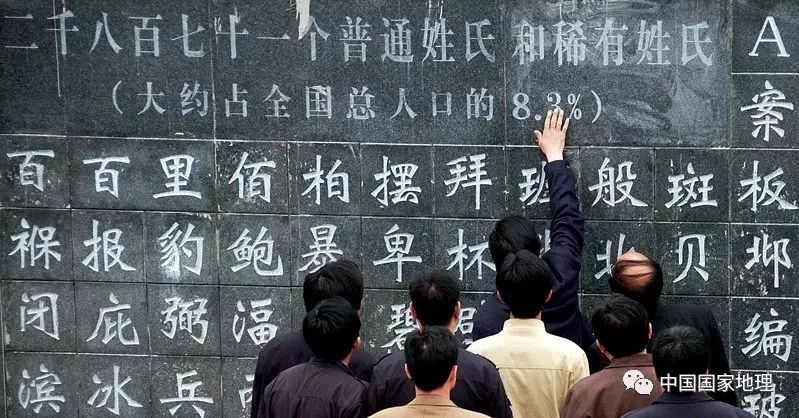 二千八百七十一个普通姓氏 和稀有姓氏 A
（大约占全国总人口的 8.3%） 案
百 百 里 佰 柏 摆 拜 班 般 斑 板
褓 报 豹 鲍 暴 卑 杯 北 贝 邶
闭 庇 弼 湢 碧 编
滨 冰 兵
中国国家地理